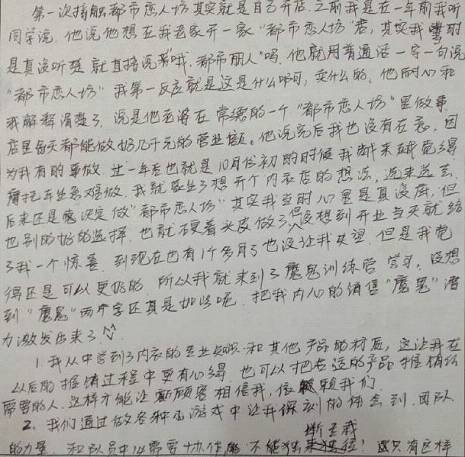 第一次接触都市恋人坊其实就是自己开店,之前我是在一年前我听
同学说,他说他想在我老家开一家"都市恋人坊"店,其实我当时
是真没听楚就直接说着哦,都市丽人"吗,他就用普通话一字一句说
"都市恋人坊"我第一反应就是这是什么啊,卖什么的,他耐心和
我解释清楚了,说是他老婆在常德的一个"都市恋人坊"里做事
店里每天都能做好几千元的营业额。他说完后我也没有在意,因
为我有的事做,在一年后也就是10月份初的时候我
就产生了想开个内衣店的想法,选来选去,
后来还是决定做"都市恋人坊"其实我当时心里是真没底,但
也别的好的选择,也就硬着头皮做了,没想到开业当天就给
了我一个惊喜,到现在也有1个多月了也没让我失望,但是我觉
得还是可以更好的,所以我就来到了魔鬼训练营学习,没想
到"魔鬼"两个字还真是如此呢,把我内心的销售"魔鬼"潜
力激发出来了
1.我从中学到了内衣的专业知识和其他产品的材质,这让我在
以后的推销过程中更有心得,也可以把合适的产品推销给
需要的人,这样才能让顾客相信我,信赖我们。
2.我们通过做各种小游戏中让我深刻的体会到,团队
的力量,和队员中心需要协作 不能独来独往!